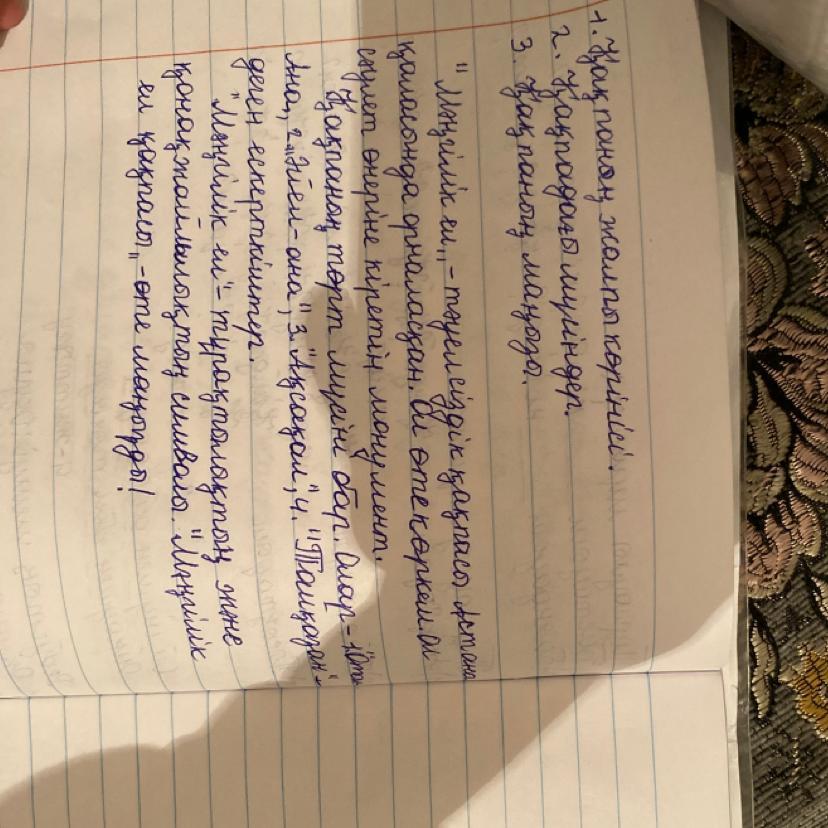 1. Қақпаның жалпы көрінісі.
2. Қақпадағы мүсіндер.
3. Қақпаның маңызы.
"Мәңгілік ел„ - тәуелсіздік қақпасы Астана
қаласында орналасқан. Ол өте көркем ол
сәулет өнеріне кіретін монумент.
Қақпаның төрт мүсіні бар. Олар -
Ана", 2. "Әйел-ана", 3. "Ақсақал", 4. "Тайқазан"
деген ескерткіштер.
"Мәңгілік ел" - тұрақтылықтың және
қонақжайлылықтың символы. "Мәңгілік
ел қақпасы„ - өте маңызды!